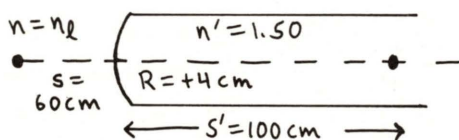 n = nℓ
n' = 1.50
s =
60cm
R = +4 cm
S' = 100 cm